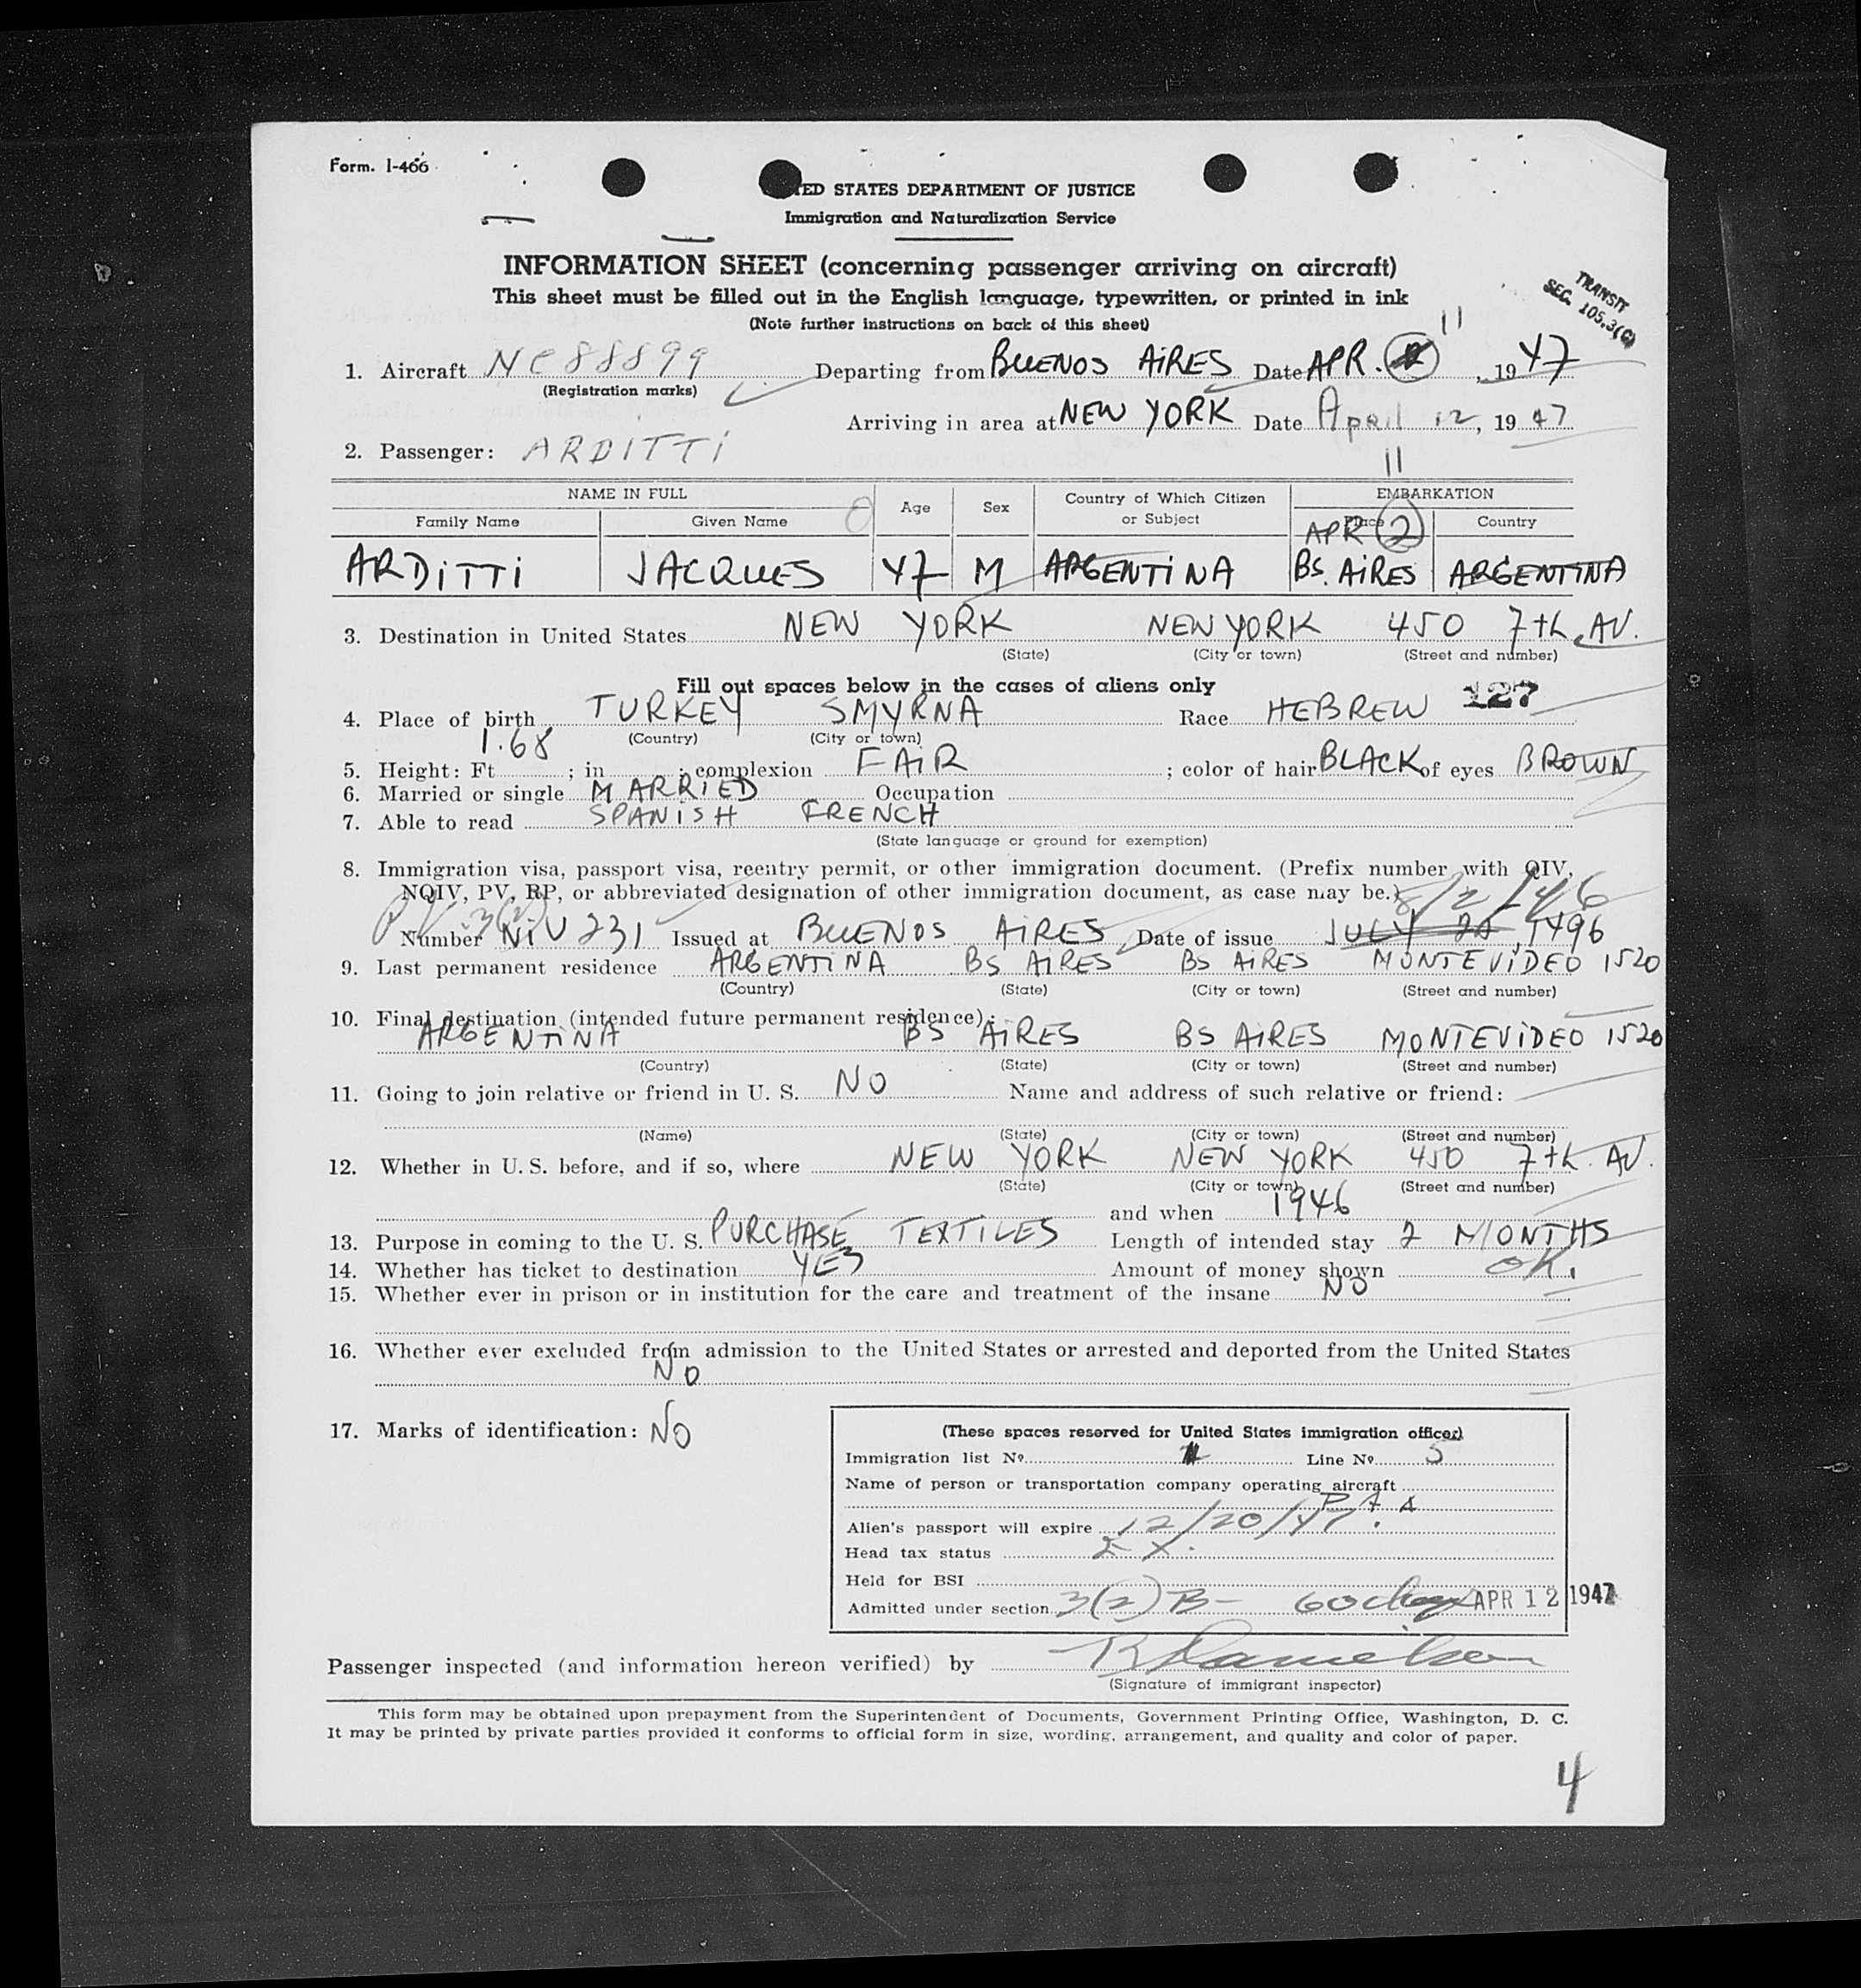 Form. I-466
UNITED STATES DEPARTMENT OF JUSTICE
Immigration and Naturalization Service
INFORMATION SHEET (concerning passenger arriving on aircraft)
This sheet must be filled out in the English language, typewritten, or printed in ink
(Note further instructions on back of this sheet)
TRANSIT
SEC. 105.3(C)
11
1. Aircraft NC88899 Departing from BUENOS AIRES Date APR. , 19 47
(Registration marks)
Arriving in area at NEW YORK Date April 12, 19 47
2. Passenger: ARDITTI
11
NAME IN FULL Age Sex Country of Which Citizen or Subject EMBARKATION
Family Name Given Name Place Country
APR 2
ARDITTI JACQUES 47 M ARGENTINA BS. AIRES ARGENTINA
3. Destination in United States NEW YORK NEW YORK 450 7th AV.
(State) (City or town) (Street and number)
Fill out spaces below in the cases of aliens only
4. Place of birth TURKEY SMYRNA Race HEBREW 127
(Country) (City or town)
5. Height: Ft 1.68 ; in ; complexion FAIR ; color of hair BLACK of eyes BROWN
6. Married or single MARRIED Occupation
7. Able to read SPANISH FRENCH
(State language or ground for exemption)
8. Immigration visa, passport visa, reentry permit, or other immigration document. (Prefix number with QIV,
NQIV, PV, RP, or abbreviated designation of other immigration document, as case may be.)
PV 3(2) 8/2/46
Number NIV 231 Issued at BUENOS AIRES Date of issue JULY 20, 1496
9. Last permanent residence ARGENTINA BS AIRES BS AIRES MONTEVIDEO 1520
(Country) (State) (City or town) (Street and number)
10. Final destination (intended future permanent residence):
ARGENTINA BS AIRES BS AIRES MONTEVIDEO 1520
(Country) (State) (City or town) (Street and number)
11. Going to join relative or friend in U. S. NO Name and address of such relative or friend:
(Name) (State) (City or town) (Street and number)
12. Whether in U. S. before, and if so, where NEW YORK NEW YORK 450 7th. AV.
(State) (City or town) (Street and number)
and when 1946
13. Purpose in coming to the U. S. PURCHASE TEXTILES Length of intended stay 2 MONTHS
14. Whether has ticket to destination YES Amount of money shown OK.
15. Whether ever in prison or in institution for the care and treatment of the insane NO
16. Whether ever excluded from admission to the United States or arrested and deported from the United States
NO
17. Marks of identification: NO
(These spaces reserved for United States immigration officer)
Immigration list No. Line No. 5
Name of person or transportation company operating aircraft
P A A
Alien's passport will expire 12/20/47.
Head tax status EX.
Held for BSI
Admitted under section 3(2) B- 60 days APR 12 1947
Passenger inspected (and information hereon verified) by
(Signature of immigrant inspector)
This form may be obtained upon prepayment from the Superintendent of Documents, Government Printing Office, Washington, D. C.
It may be printed by private parties provided it conforms to official form in size, wording, arrangement, and quality and color of paper.
4